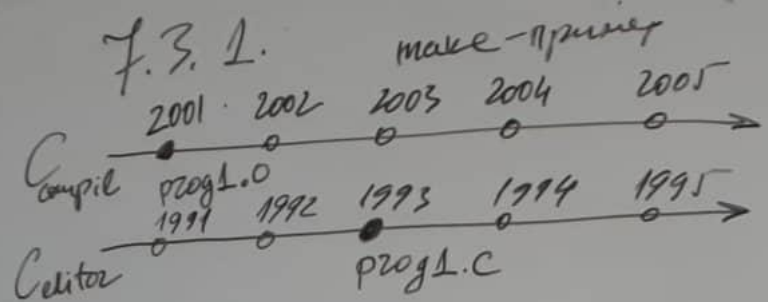 7.3.1.
make-пример
2001 2002 2003 2004 2005
Ccompil prog1.o
1991 1992 1993 1994 1995
Ceditor prog1.c